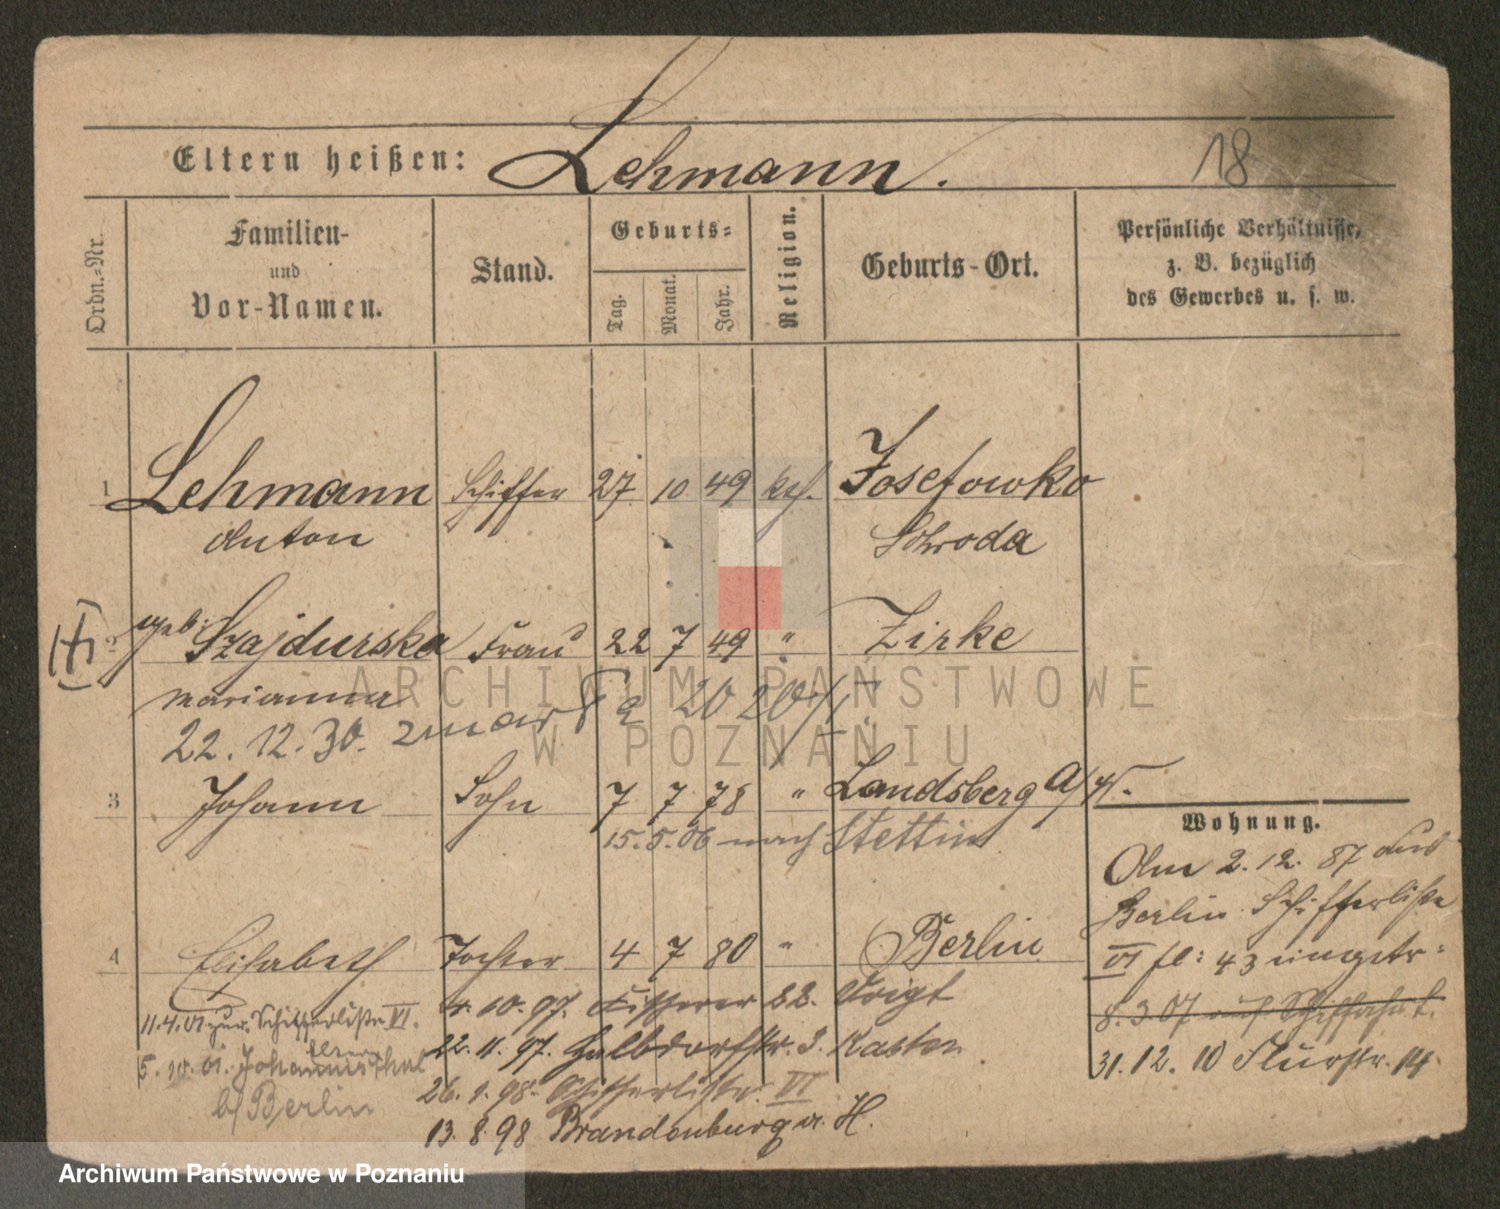 18
Eltern heißen: Lehmann.
Ordn.-Nr.
Familien-
und
Vor-Namen.
Stand.
Geburts-
Tag.
Monat.
Jahr.
Religion.
Geburts-Ort.
Persönliche Verhältnisse,
z. B. bezüglich
des Gewerbes u. s. w.
1 Lehmann Schiffer 27 10 49 kth. Josefowko
Anton Schroda
2 geb. Szajdurska Frau 22 7 49 " Zirke
Marianna
22. 12. 30. zmarła 20
3 Johann Sohn 7 7 78 " Landsberg a/W.
15. 5. 06 nach Stettin
4 Elisabeth Tochter 4 7 80 " Berlin
4. 10. 97. Fischerei 22. Voigt
11.4.01 zur. Schifferliste VI.
22. 11. 97. Halbdorfstr. 3. Kasten
5. 10. 01. Johannisthal
b/Berlin
26. 1. 98. Schifferliste VI
13. 8. 98 Brandenburg a. H.
Wohnung.
Am 2. 12. 87 aus
Berlin Schifferliste
VI fl: 43 eingetr:
8. 3 07 auf Schiffahrt.
31. 12. 10 Flurstr. 14.
ARCHIWUM PAŃSTWOWE
W POZNANIU
Archiwum Państwowe w Poznaniu